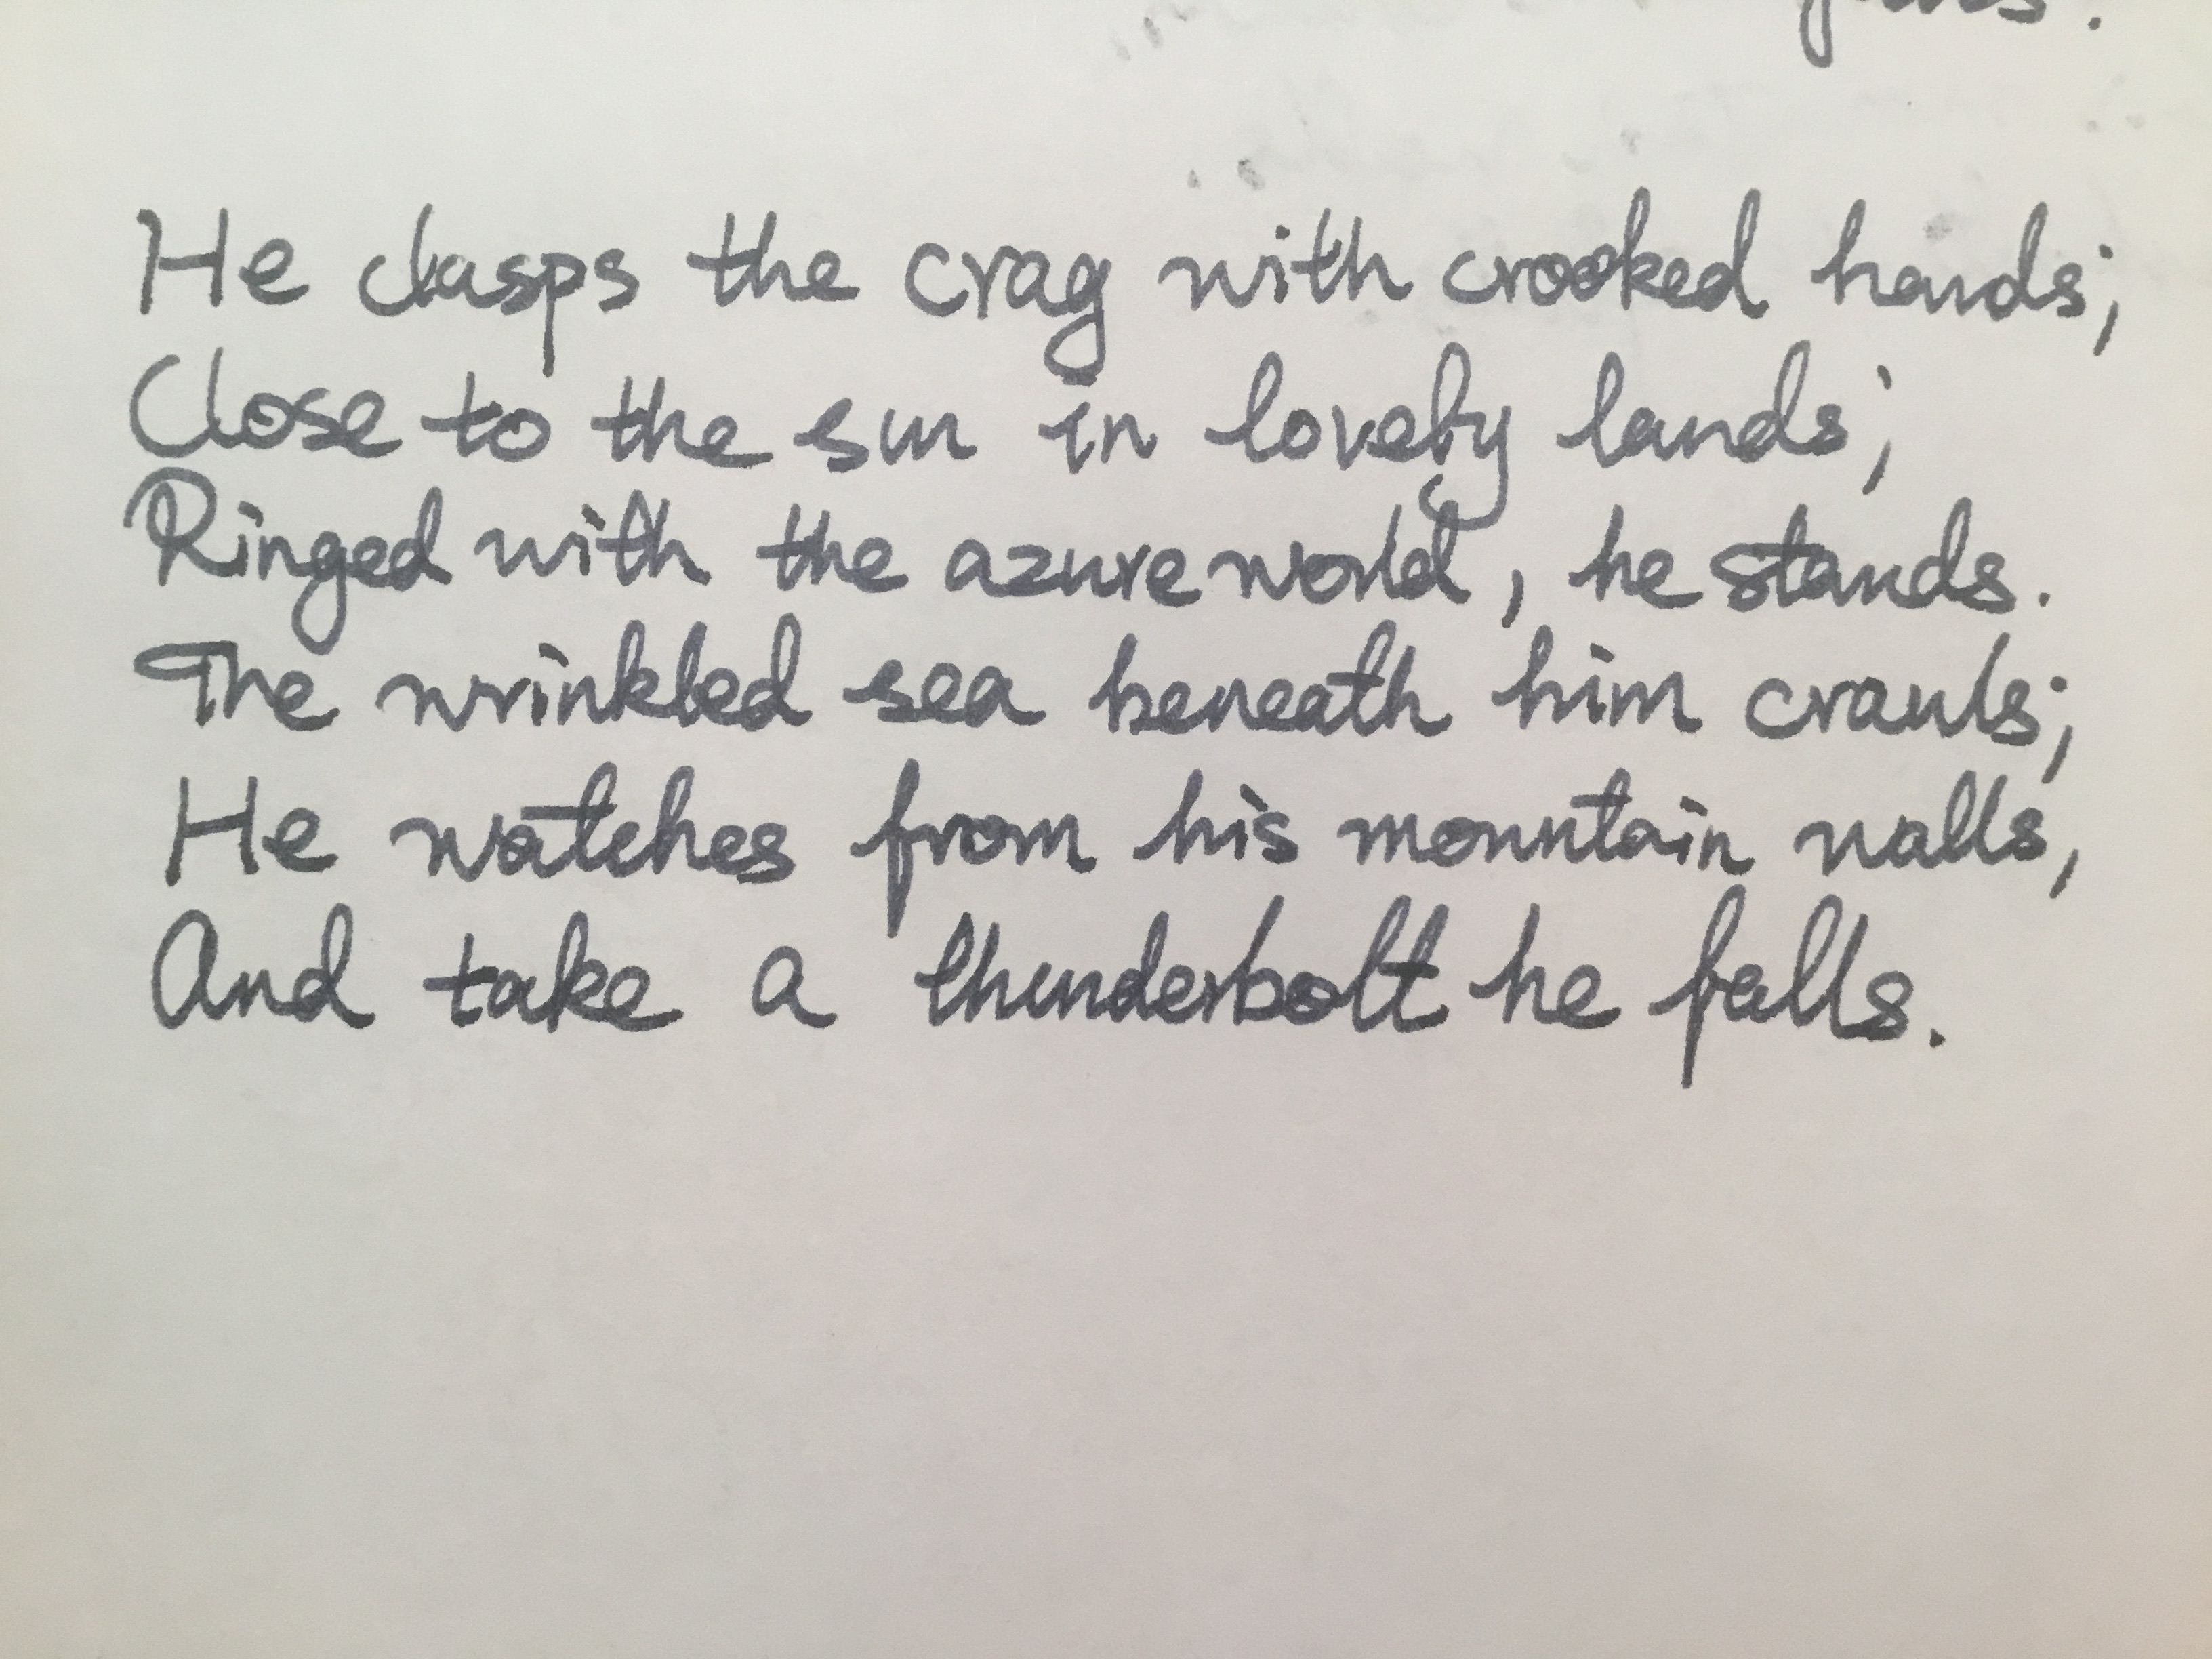 He clasps the crag with crooked hands;
Close to the sun in lovely lands;
Ringed with the azure world, he stands.
The wrinkled sea beneath him crawls;
He watches from his mountain walls,
And take a thunderbolt he falls.